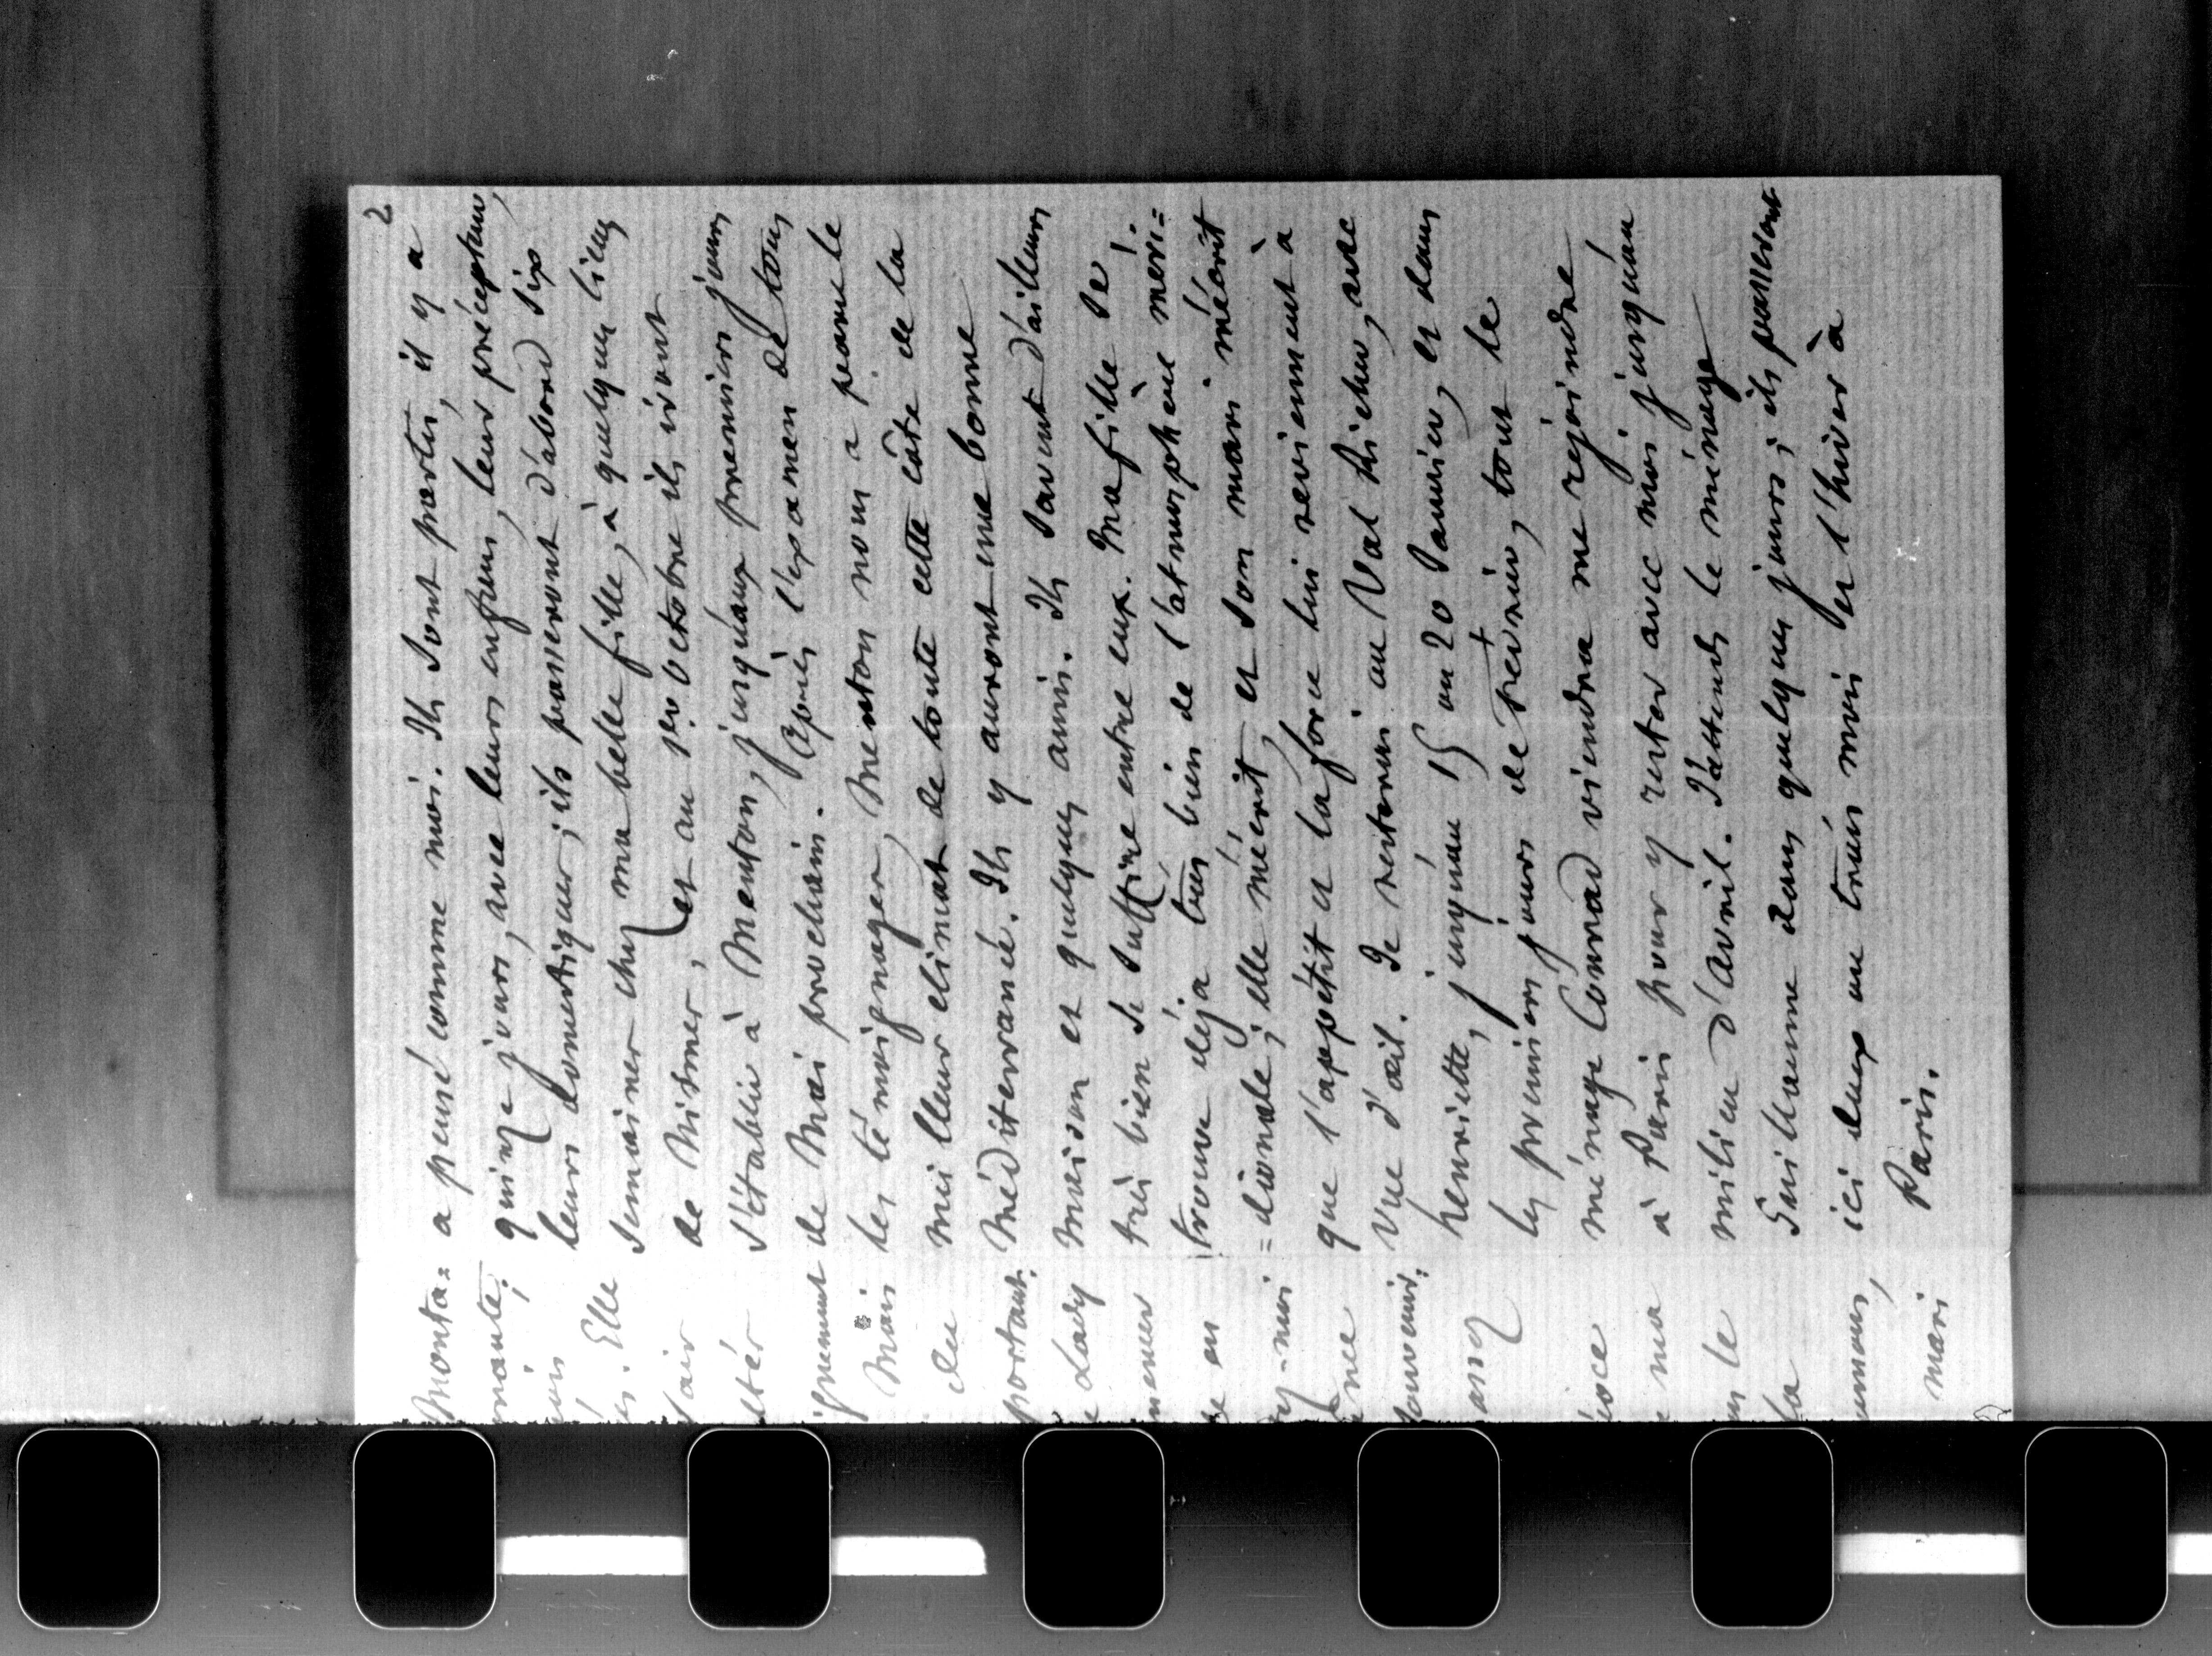 2
a pensé comme moi. Ils sont partis, il y a
quinze jours, avec leurs enfans, leur précepteur,
leurs domestiques; ils passeront d'abord six
semaines chez ma belle fille, à quelques lieues
de Nismes, et au 1er Octobre ils iront
s'établir à Menton, jusqu'aux premiers jours
de Mai prochain. Après l'examen de tous
les témoignages, Menton nous a paru le
meilleur climat de toute cette côte de la
Méditerranée. Ils y auront une bonne
maison et quelques amis. Ils savent d'ailleurs
très bien se suffire entre eux. Ma fille se
trouve déja très bien de l'atmosphère méri=
=dionale; elle m'écrit, et son mari m'écrit
que l'appétit et la force lui reviennent à
vue d'œil. Je resterai au Val Richer, avec
Henriette, jusqu'au 15 ou 20 Janvier, et dans
les premiers jours de février, tout le
ménage Conrad viendra me rejoindre
à Paris pour y rester avec moi jusqu'au
milieu d'avril. J'attends le ménage
Guillaume dans quelques jours; ils passeront
ici deux ou trois mois et l'hiver à
Paris.
Monta=
Elle
l'air
Mais
du
portant.
Lady
en
souvenir.
ma
le
la
mari